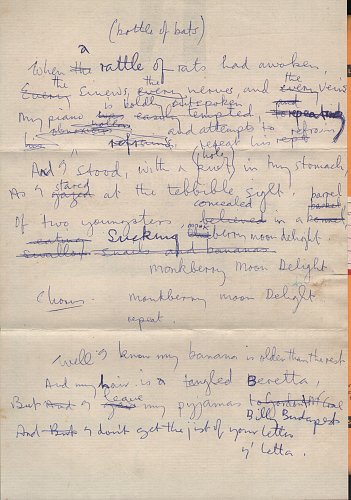 (bottle of bats)
a
When the rattle of rats had awoken,
the the the
Every Sinews, every nerves and every veins
is boldly outspoken and
My piano has easily tempted, to repeatedly
hollow and attempts to refrains
has refrains repeat his
(hole)
And I stood, with a knot in my stomach,
stared
As I gazed at the terrible sight,
concealed barrel
Of two youngsters believed in a barrel
eating Sucking monkberry moon delight
swallow snails and bananas
monkberry Moon Delight.
Chorus. monkberry moon Delight
repeat.
Well I know my banana is older than the rest
And my hair is a tangled Beretta,
leave
But And I my pyjamas to
Billy Budapest
And But I don't get the jist of your letter
y' letta.